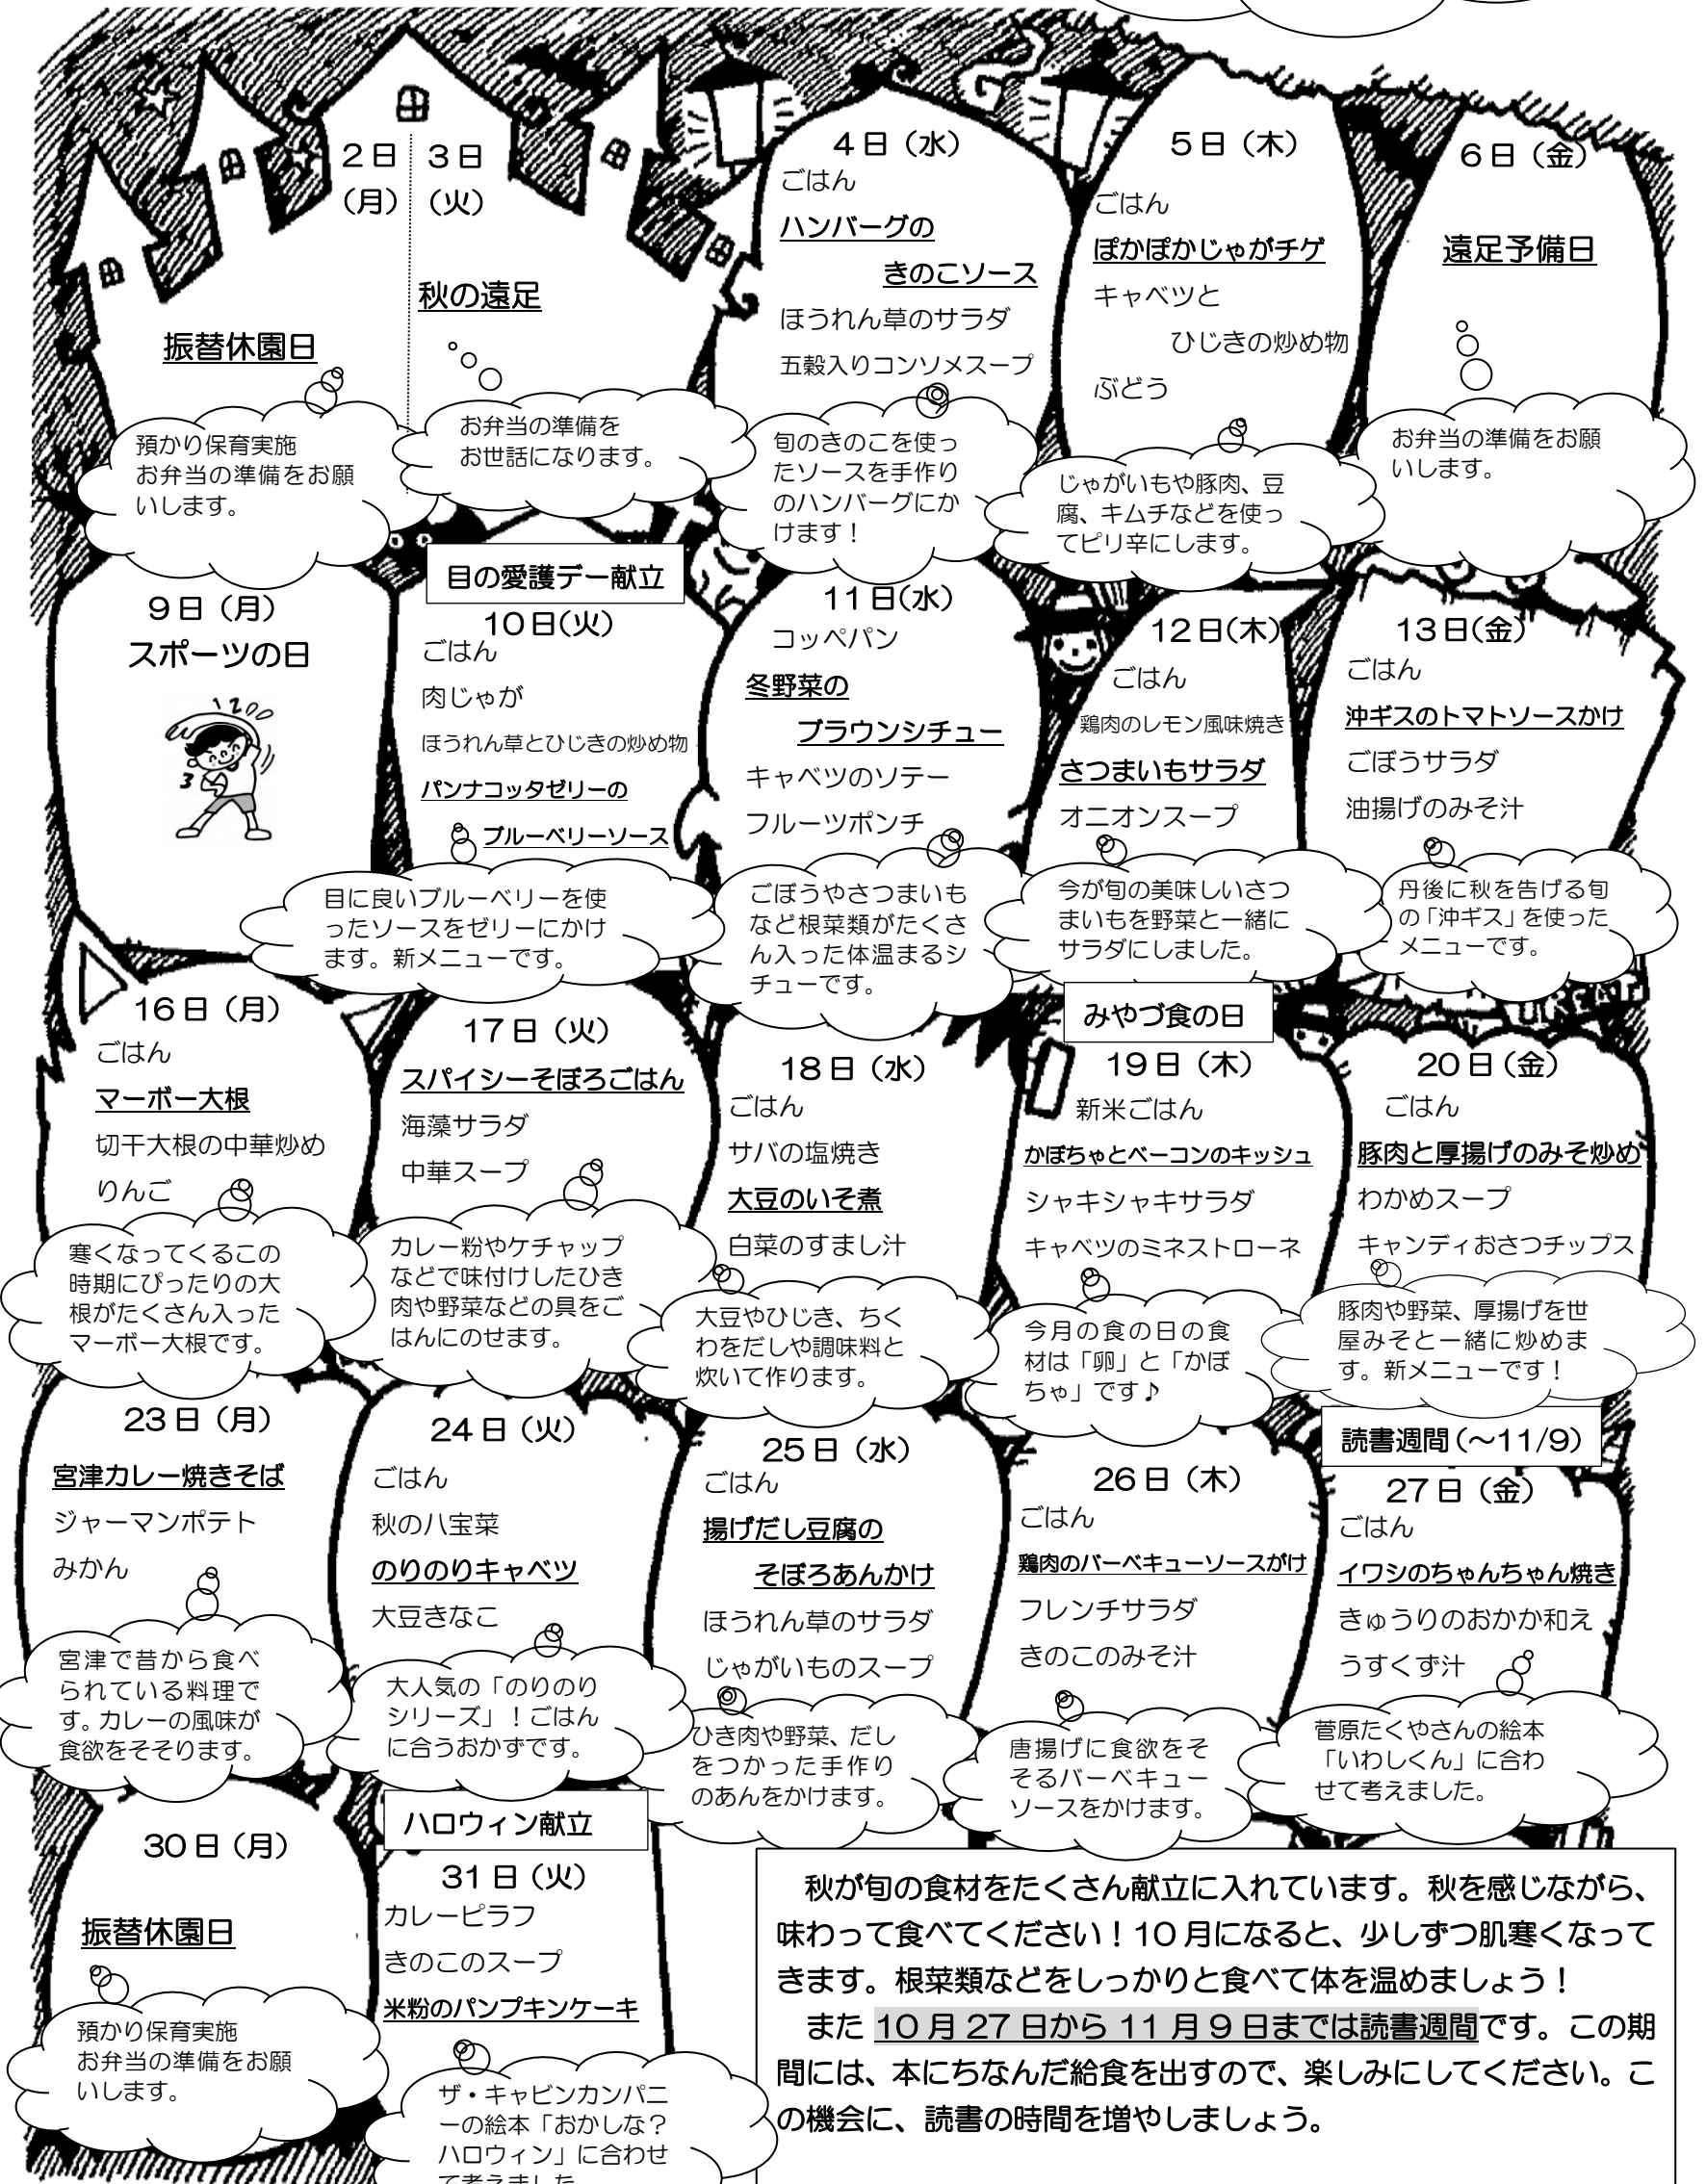 2日
(月)
振替休園日
預かり保育実施
お弁当の準備をお願
いします。
3日
(火)
秋の遠足
お弁当の準備を
お世話になります。
4日（水）
ごはん
ハンバーグの
きのこソース
ほうれん草のサラダ
五穀入りコンソメスープ
旬のきのこを使っ
たソースを手作り
のハンバーグにか
けます！
5日（木）
ごはん
ぽかぽかじゃがチゲ
キャベツと
ひじきの炒め物
ぶどう
じゃがいもや豚肉、豆
腐、キムチなどを使っ
てピリ辛にします。
6日（金）
遠足予備日
お弁当の準備をお願
いします。
9日（月）
スポーツの日
1 2
3
目の愛護デー献立
10日(火)
ごはん
肉じゃが
ほうれん草とひじきの炒め物
パンナコッタゼリーの
ブルーベリーソース
目に良いブルーベリーを使
ったソースをゼリーにかけ
ます。新メニューです。
11日(水)
コッペパン
冬野菜の
ブラウンシチュー
キャベツのソテー
フルーツポンチ
ごぼうやさつまいも
など根菜類がたくさ
ん入った体温まるシ
チューです。
12日(木)
ごはん
鶏肉のレモン風味焼き
さつまいもサラダ
オニオンスープ
今が旬の美味しいさつ
まいもを野菜と一緒に
サラダにしました。
13日(金)
ごはん
沖ギスのトマトソースかけ
ごぼうサラダ
油揚げのみそ汁
丹後に秋を告げる旬
の「沖ギス」を使った
メニューです。
16日（月）
ごはん
マーボー大根
切干大根の中華炒め
りんご
寒くなってくるこの
時期にぴったりの大
根がたくさん入った
マーボー大根です。
17日（火）
スパイシーそぼろごはん
海藻サラダ
中華スープ
カレー粉やケチャップ
などで味付けしたひき
肉や野菜などの具をご
はんにのせます。
18日（水）
ごはん
サバの塩焼き
大豆のいそ煮
白菜のすまし汁
大豆やひじき、ちく
わをだしや調味料と
炊いて作ります。
みやづ食の日
19日（木）
新米ごはん
かぼちゃとベーコンのキッシュ
シャキシャキサラダ
キャベツのミネストローネ
今月の食の日の食
材は「卵」と「かぼ
ちゃ」です♪
20日（金）
ごはん
豚肉と厚揚げのみそ炒め
わかめスープ
キャンディおさつチップス
豚肉や野菜、厚揚げを世
屋みそと一緒に炒めま
す。新メニューです！
23日（月）
宮津カレー焼きそば
ジャーマンポテト
みかん
宮津で昔から食べ
られている料理で
す。カレーの風味が
食欲をそそります。
24日（火）
ごはん
秋の八宝菜
のりのりキャベツ
大豆きなこ
大人気の「のりのり
シリーズ」！ごはん
に合うおかずです。
25日（水）
ごはん
揚げだし豆腐の
そぼろあんかけ
ほうれん草のサラダ
じゃがいものスープ
ひき肉や野菜、だし
をつかった手作り
のあんをかけます。
26日（木）
ごはん
鶏肉のバーベキューソースがけ
フレンチサラダ
きのこのみそ汁
唐揚げに食欲をそ
そるバーベキュー
ソースをかけます。
読書週間(～11/9)
27日（金）
ごはん
イワシのちゃんちゃん焼き
きゅうりのおかか和え
うすくず汁
菅原たくやさんの絵本
「いわしくん」に合わ
せて考えました。
30日（月）
振替休園日
預かり保育実施
お弁当の準備をお願
いします。
ハロウィン献立
31日（火）
カレーピラフ
きのこのスープ
米粉のパンプキンケーキ
ザ・キャビンカンパニ
ーの絵本「おかしな？
ハロウィン」に合わせ
て考えました
秋が旬の食材をたくさん献立に入れています。秋を感じながら、
味わって食べてください！10月になると、少しずつ肌寒くなって
きます。根菜類などをしっかりと食べて体を温めましょう！
また 10月27日から11月9日までは読書週間です。この期
間には、本にちなんだ給食を出すので、楽しみにしてください。こ
の機会に、読書の時間を増やしましょう。